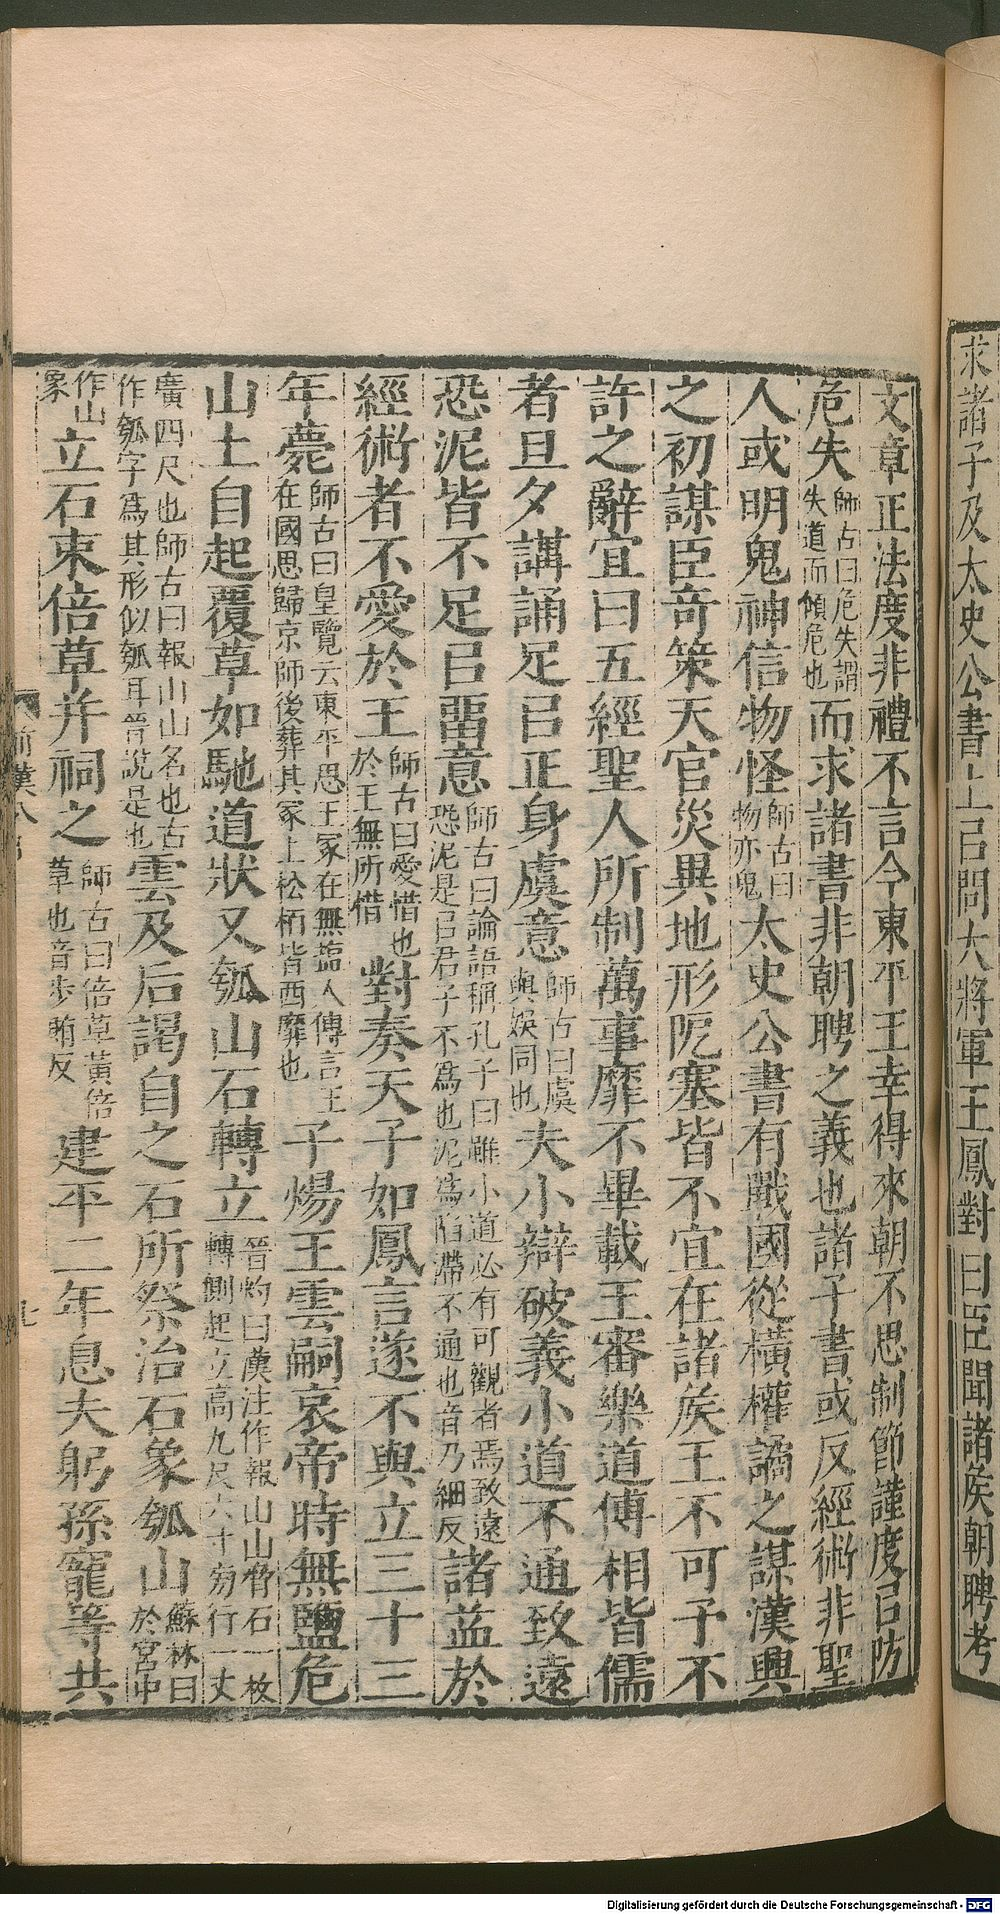 求諸子及太史公書上㠯問大將軍王鳳對曰臣聞諸矦朝聘考
文章正法度非禮不言今東平王幸得來朝不思制節謹度㠯防
危失師古曰危失謂失道而傾危也而求諸書非朝聘之義也諸子書或反經術非聖
人或明鬼神信物怪師古曰物亦鬼太史公書有戰國從橫權譎之謀漢興
之初謀臣奇策天官災異地形阸塞皆不宜在諸矦王不可予不
許之辭宜曰五經聖人所制萬事靡不畢載王審樂道傅相皆儒
者旦夕講誦足㠯正身虞意師古曰虞與娛同也夫小辯破義小道不通致遠
恐泥皆不足㠯畱意師古曰論語稱孔子曰雖小道必有可觀者焉致遠恐泥是㠯君子不爲也泥爲陷滯不通也音乃細反諸益於
經術者不愛於王師古曰愛惜也於王無所惜對奏天子如鳳言遂不與立三十三
年薨師古曰皇覽云東平思王冢在無鹽人傳言王在國思歸京師後葬其冢上松栢皆西靡也子煬王雲嗣哀帝時無鹽危
山土自起覆草如馳道狀又瓠山石轉立晉灼曰漢注作報山山脅石一枚轉側起立高九尺六寸旁行一丈
廣四尺也師古曰報山山名也古作瓠字爲其形似瓠耳晉說是也雲及后謁自之石所祭治石象瓠山蘇林曰於宮中
作山象立石束倍草并祠之師古曰倍草黃倍草也音步賄反建平二年息夫躬孫寵等共
前漢八
七
Digitalisierung gefördert durch die Deutsche Forschungsgemeinschaft - DFG